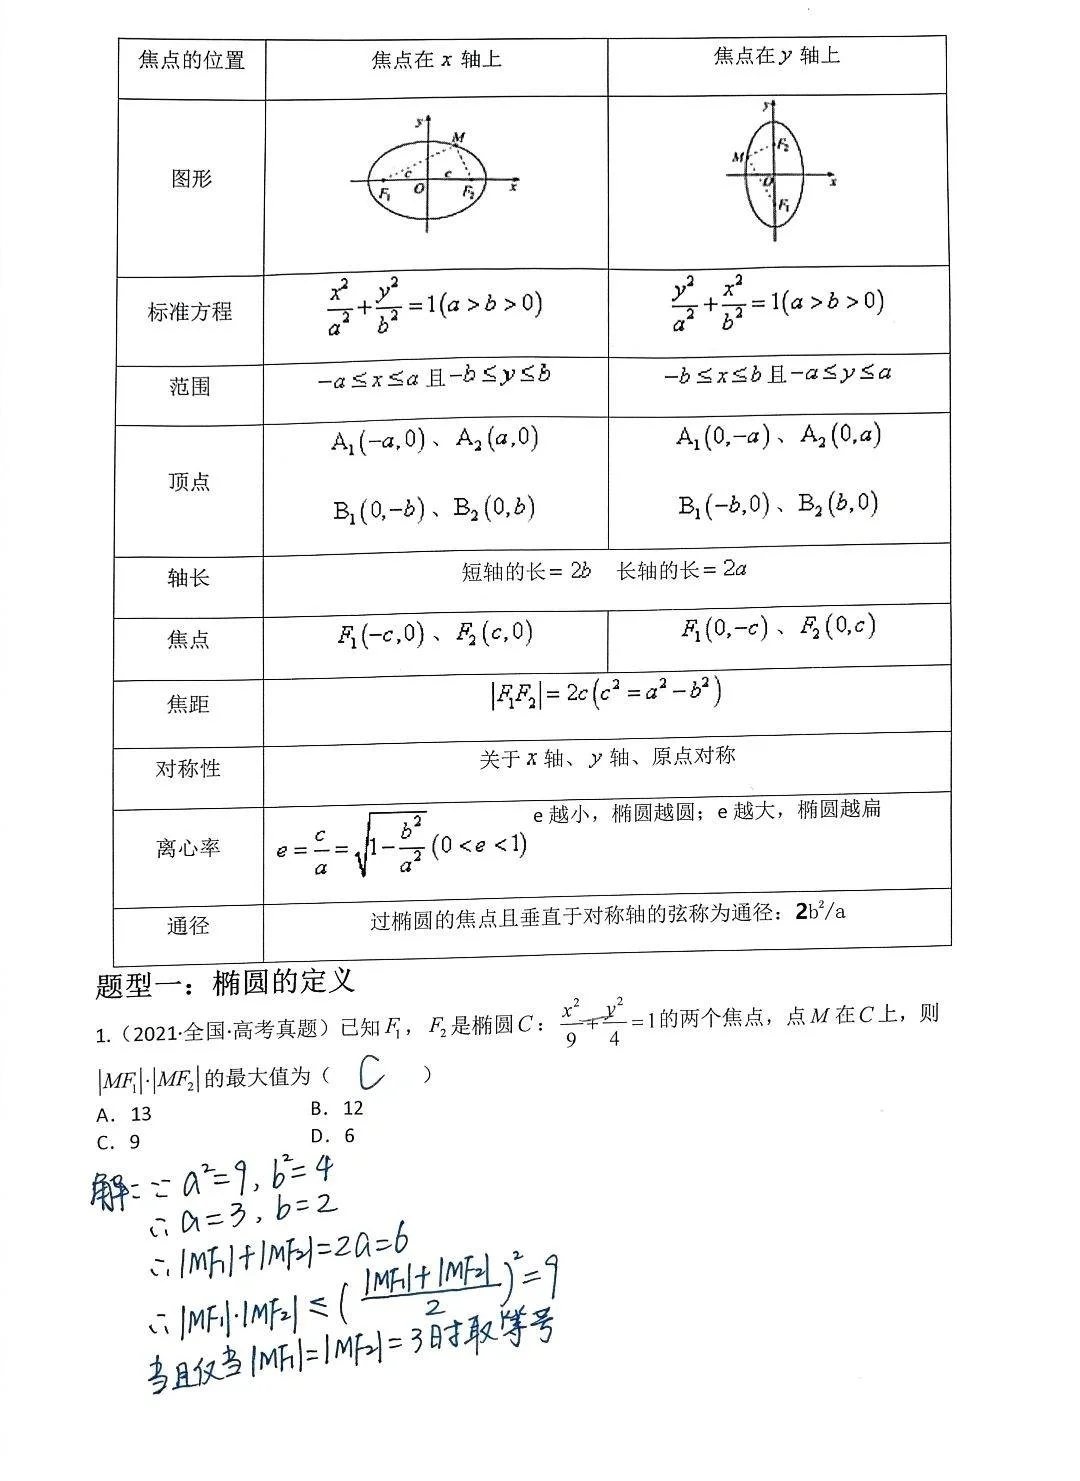 焦点的位置 焦点在 x 轴上 焦点在 y 轴上
图形 y M c c F₁ O F₂ x y F₂ M O x F₁
标准方程 x²/a² + y²/b² = 1(a > b > 0) y²/a² + x²/b² = 1(a > b > 0)
范围 -a ≤ x ≤ a 且 -b ≤ y ≤ b -b ≤ x ≤ b 且 -a ≤ y ≤ a
顶点 A₁(-a,0)、A₂(a,0) A₁(0,-a)、A₂(0,a)
B₁(0,-b)、B₂(0,b) B₁(-b,0)、B₂(b,0)
轴长 短轴的长= 2b 长轴的长= 2a
焦点 F₁(-c,0)、F₂(c,0) F₁(0,-c)、F₂(0,c)
焦距 |F₁F₂| = 2c(c² = a² - b²)
对称性 关于 x 轴、y 轴、原点对称
离心率 e = c/a = √(1 - b²/a²) (0 < e < 1) e 越小，椭圆越圆；e 越大，椭圆越扁
通径 过椭圆的焦点且垂直于对称轴的弦称为通径：2b²/a
题型一：椭圆的定义
1.（2021·全国·高考真题）已知 F₁，F₂是椭圆 C：x²/9 + y²/4 = 1的两个焦点，点 M 在 C 上，则
|MF₁|·|MF₂| 的最大值为（ C ）
A．13 B．12
C．9 D．6
解：∵ a²=9, b²=4
∴ a=3, b=2
∴ |MF₁|+|MF₂|=2a=6
∴ |MF₁|·|MF₂| ≤ ((|MF₁|+|MF₂|)/2)²=9
当且仅当|MF₁|=|MF₂|=3时取等号